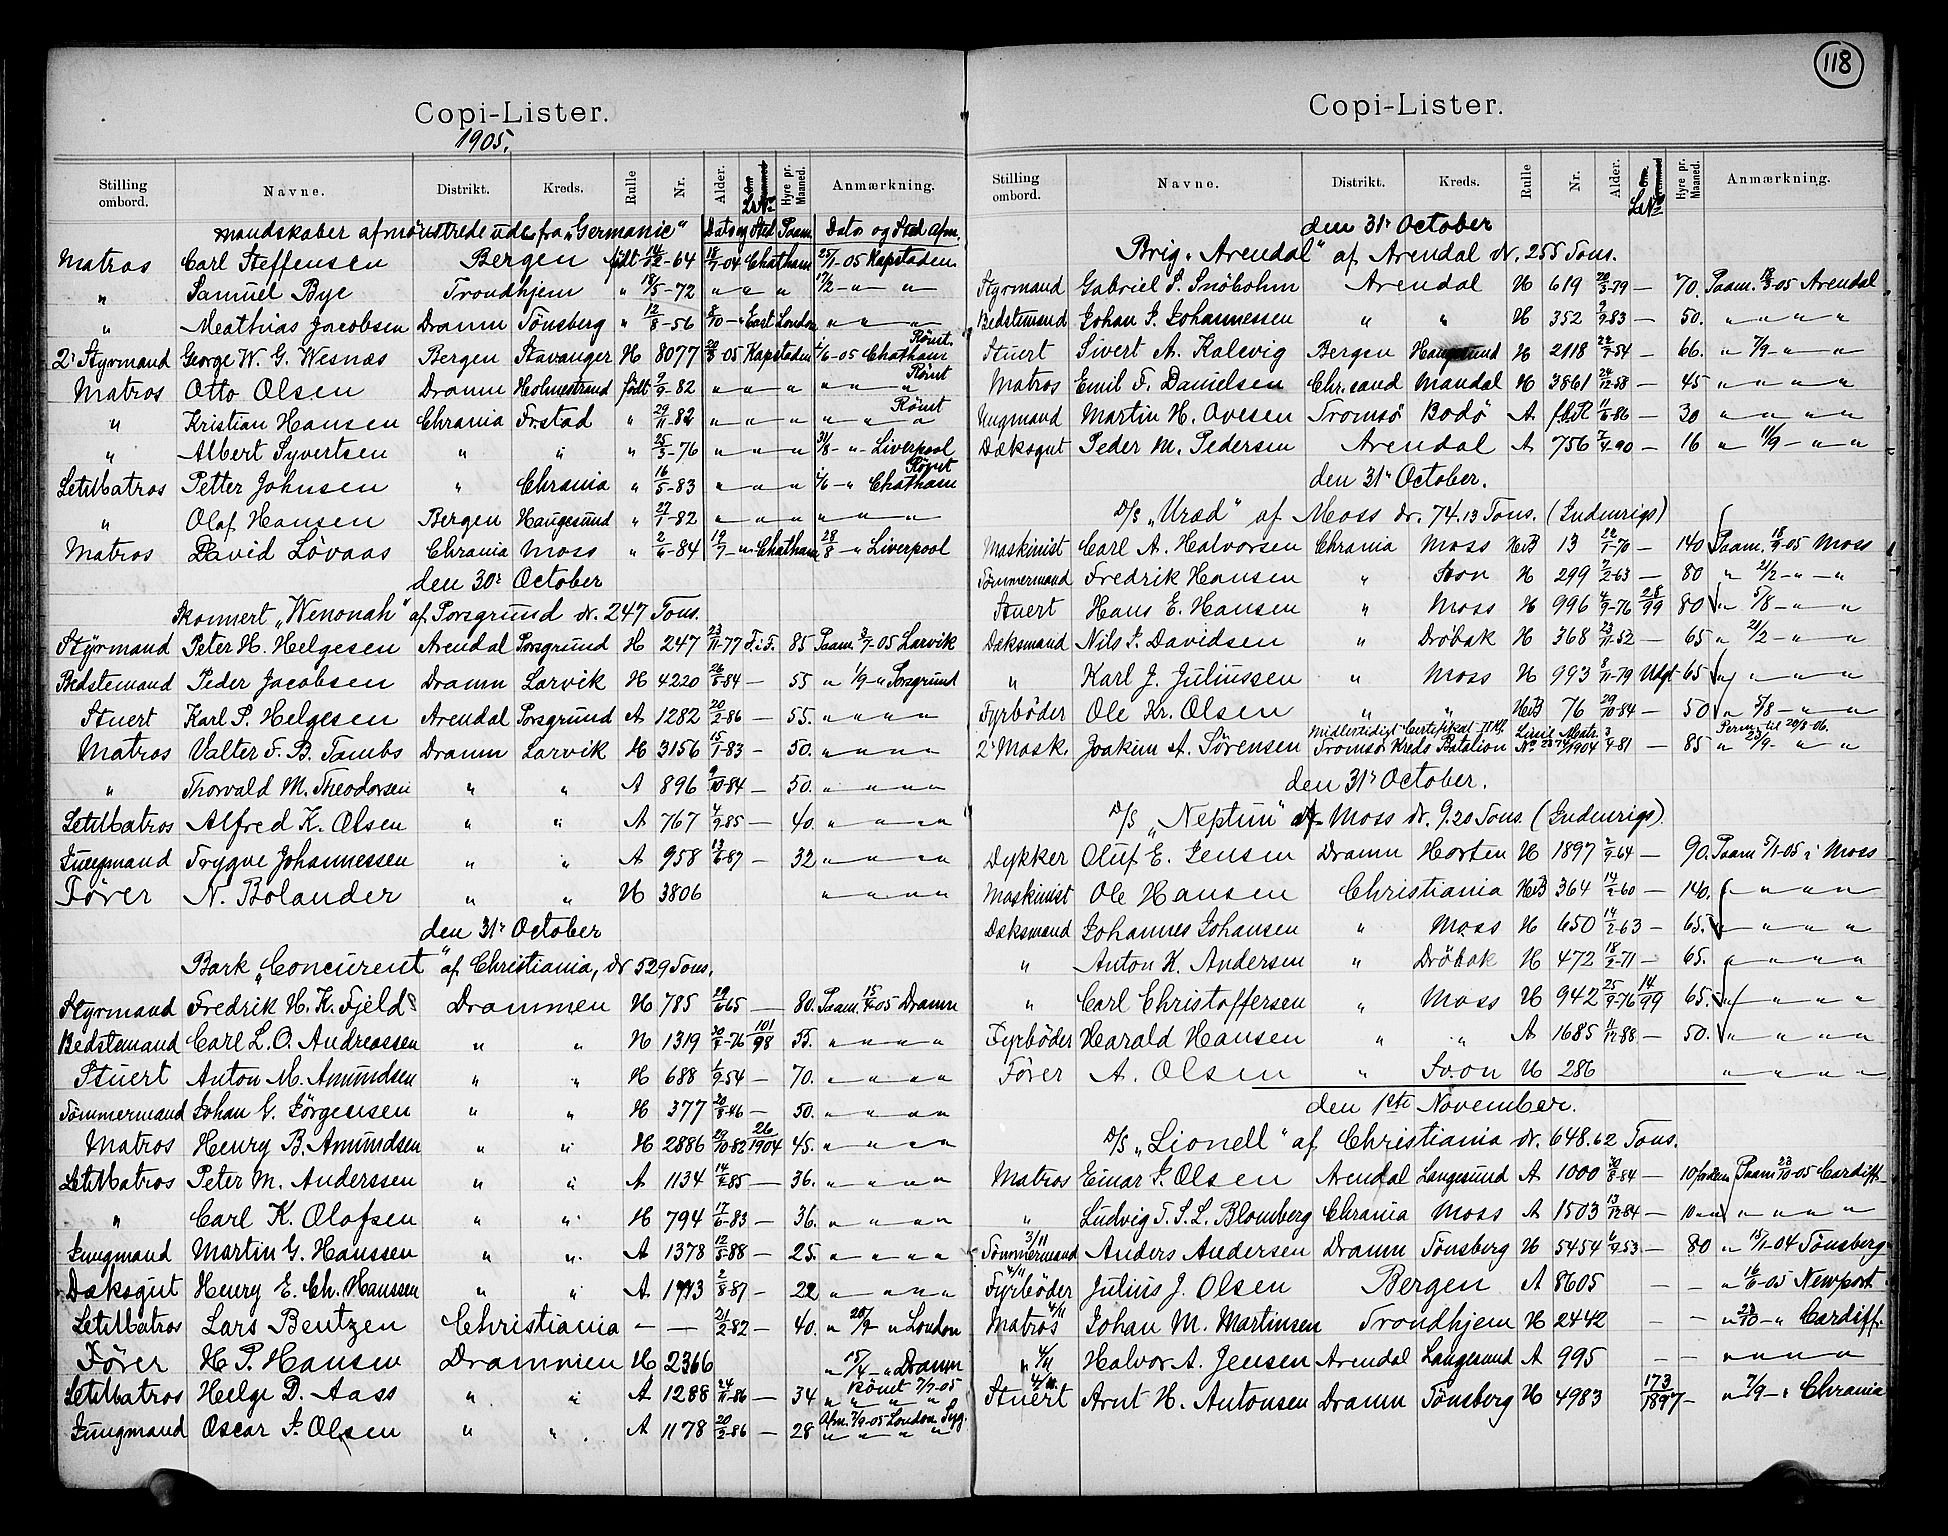 Copi-Lister.
1905.
Stilling ombord. Navne. Distrikt. Kreds. Rulle Nr. Alder. Hyre pr. Maaned. Anmærkning.
mandskaber afmönstrede ude fra "Germanic" Dato og Sted Paam. Dato og Sted Afm.
Matros Carl Steffensen Bergen født 14/12-64 18/7-04 Chatham 25/1-05 Kapstaden
" Samuel Bye Trondhjem " 18/5-72 " " " 17/2 - " - "
" Mathias Jacobsen Dramn Tönsberg " 12/8-56 8/10 - " East London " - " - "
2' Styrmand George W. G. Wesnæs Bergen Stavanger H 8077 -05 Kapstaden 1/6-05 Chatham Römt.
Matros Otto Olsen Dramn Holmestrand født 9/9-82 " " " " " " Römt
" Kristian Hansen Chrania Frstad " 29/11-82 " " " " " " Römt
" Albert Syvertsen " " " 25/3-76 " " " 31/8 - " - Liverpool
LetMatros Petter Johnsen " Chrania " 16/5-83 " " " 1/6 - " Chatham Römt
" Olaf Hansen Bergen Haugesund " 27/1-82 " " " " " "
Matros David Lövaas Chrania Moss " 2/6-84 19/7 - " Chatham 28/8 - " Liverpool
den 30' October
Skonnert "Wenonah" af Porsgrund dr. 247 Tons.
Styrmand Peter H. Helgesen Arendal Porsgrund H 247 23/11-77 F.i.F. 85 Paam. 3/7-05 Larvik
Bedstemand Peder Jacobsen Dramn Larvik H 4220 26/5-84 — 55 " 1/9 - " Porsgrund
Stuert Karl P. Helgesen Arendal Porsgrund A 1282 20/2-86 — 55. " " " "
Matros Valter F. B. Tambs Dramn Larvik H 3156 15/1-83 — 50. " " " "
" Thorvald M. Theodorsen " " A 896 9/10-84 — 50. " " " "
LetMatros Alfred K. Olsen " " A 767 4/9-85 — 40. " " " "
Jungmand Trygve Johannessen " " A 958 13/6-87 — 32 " " " "
Förer N. Bolander " " H 3806 " " " "
den 31' October
Bark "Concurent" af Christiania, dr 529 Tons.
Styrmand Fredrik H. K. Fjeld Drammen H 785 29/6-65 — 80. Paam. 15/4-05 Dramn
Bedstemand Carl L. O. Andreassen " " H 1319 -76 101/98 55. " " " "
Stuert Anton M. Amundsen " " H 688 1/9-54 — 70. " " " "
Tömmermand Johan G. Jörgensen " " H 377 20/8-46 — 50. " " " "
Matros Henry B. Amundsen " " H 2886 29/10-82 26/1904 45. " " " "
LetMatros Peter M. Anderssen " " A 1134 -85 — 36. " " " "
" Carl K. Olafsen " " H 794 17/6-83 — 36. " " " "
Jungmand Martin G. Hanssen " " A 1378 12/5-88 — 25. " " " "
Dæksgut Henry E. Ch. Hanssen " " A 2/8-87 — 22 " " " "
LetMatros Lars Bentzen Christiania — — 21/2-82 — 40. " 20/9 - " London
Förer H. P. Hansen Drammen H 2366 " 15/4 - " Dramn
LetMatros Helge D. Aass " " A 1288 24/11-86 — 34 Römt 7/7-05 " " " "
Jungmand Oscar J. Olsen " " A 1178 20/2-86 — 28 Afm. 7/9-05 London Syg. " " " "
118
Copi-Lister.
Stilling ombord. Navne. Distrikt. Kreds. Rulle Nr. Alder. Hyre pr. Maaned. Anmærkning.
den 31' October
Brig "Arendal" af Arendal dr. 255 Tons.
Styrmand Gabriel S. Snöbohm Arendal H 619 20/3-79 — 70. Paam. 18/3-05 Arendal
Bedstemand Johan J. Johannessen " " H 352 2/9-83 — 50. " " " "
Stuert Sivert A. Kalevig Bergen Haugesund H 2118 -54 — 66. " 7/9 - " - "
Matros Emil F. Danielsen Chr.sand Mandal H 3861 24/12-58 — 45 " " " "
Ungmand Martin H. Ovesen Tromsö Bodö A 11/6-86 — 30 " " " "
Dæksgut Peder M. Pedersen Arendal A 756 7/9-90 — 16 " 11/9 - " - "
den 31' October.
D/S "Uræd" af Moss dr. 74.13 Tons. (Indenrigs)
Maskinist Carl A. Halvorsen Chrania Moss HB 13 22/1-70 — 140 Paam. 18/9-05 Moss
Tömmermand Fredrik Hansen " Soon H 299 7/2-63 — 80 " 21/2 - " - "
Stuert Hans E. Hansen " Moss H 996 4/9-76 28/99 80 " 5/8 - " - "
Dæksmand Nils J. Davidsen " Dröbak H 368 23/11-52 — 65 " 21/2 - " - "
" Karl J. Juliussen " Moss H 993 8/11-79 Udgt 65 " " " "
Fyrböder Ole Kr. Olsen " " HB 76 29/10-84 — 50 " 5/8 - " - "
2' Mask. Joakim A. Sörensen Midlertidigt Certifikat Tromsö Kreds 1904 3/4-81 — 85 Perm. til 20/8-06. " 21/9 - " "
den 31' October.
D/S "Neptun" af Moss dr. 9.20 Tons. (Indenrigs)
Dykker Oluf E. Jensen Dramn Horten H 1897 2/9-64 — 90. Paam 5/1-05 i Moss
Maskinist Ole Hansen Christiania HB 364 14/2-60 — 140. " " " "
Dæksmand Johannes Johansen " Moss H 650 14/2-63 — 65. " " " "
" Anton K. Andersen " Dröbak H 472 18/2-71 — 65. " " " "
" Carl Christoffersen " Moss H 942 25/9-76 14/99 65. " " " "
Fyrböder Harald Hansen " " A 1685 11/12-88 — 50. " " " "
Förer A. Olsen " Soon H 286 " " " "
den 1ste November.
D/S "Lionell" af Christiania dr. 648.62 Tons.
Matros Einar J. Olsen Arendal Langesund A 1000 -84 — 10 fordem Paam 23/10-05 Cardiff
" Ludvig T. S. L. Blomberg Chrania Moss A 1503 13/12-84 — 10 " " " " " "
3/11 Tömmermand Anders Andersen Dramn Tönsberg H 5454 6/9-53 — 80 " 15/1-04 Tönsberg
4/11 Fyrböder Julius J. Olsen Bergen A 8605 — — " 16/6-05 Newport
Matros 4/11 Johan M. Martinsen Trondhjem H 2442 — — " 23/10 - " Cardiff
" 4/11 Halvor A. Jensen Arendal Langesund A 995 — — " " " "
4/11 Stuert Arnt H. Antonsen Dramn Tönsberg H 4983 173/1897 — " 7/9 - " Chrania